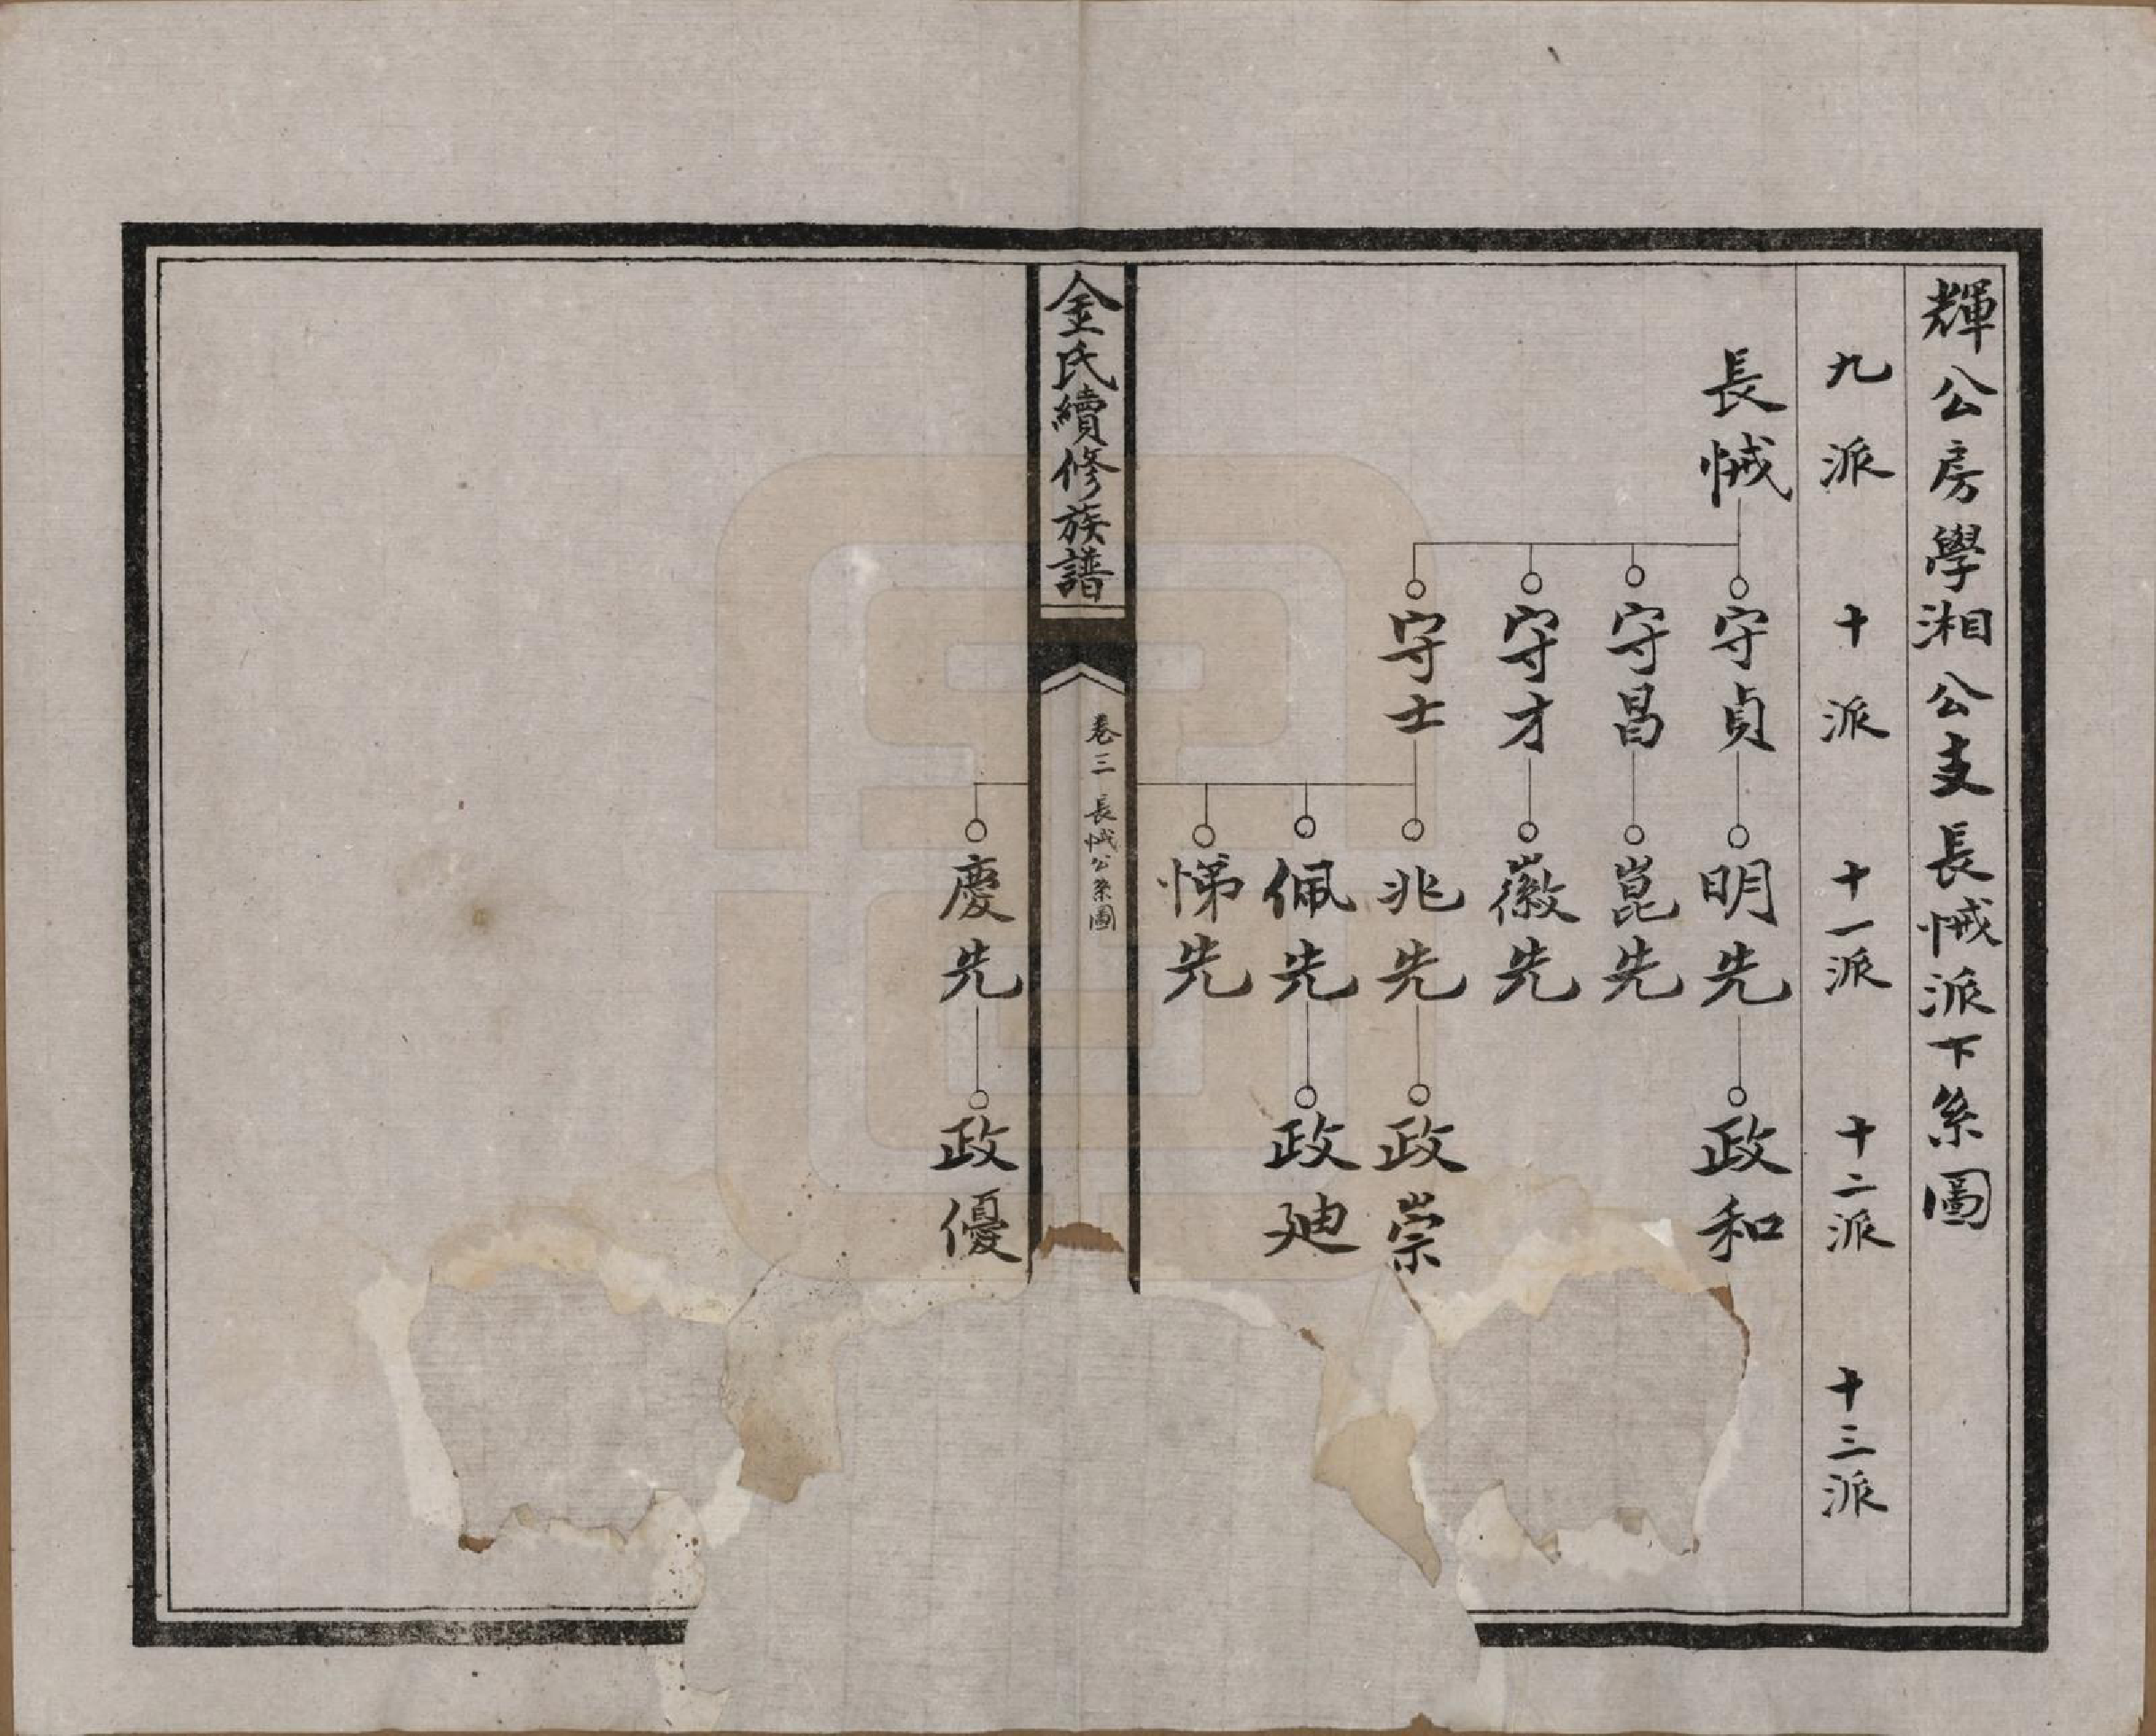 輝公房學湘公支長悈派下系圖
九派
十派
十一派
十二派
十三派
長悈
守貞
明先
政和
守昌
崑先
守才
徽先
守士
兆先
政崇
佩先
政廸
悌先
金氏續修族譜
卷三 長悈公系圖
慶先
政優